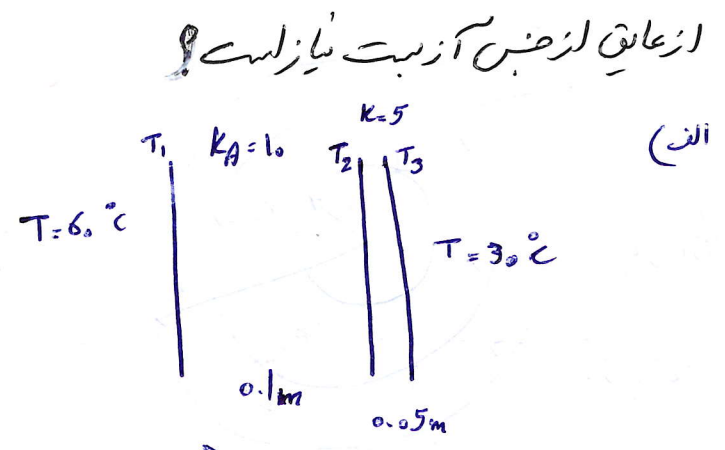 از عایق از جنس آزبست نیاز است؟
الف)
K=5
T₁ K_A=10 T₂ T₃
T=60 °C
T=30 °C
0.1m
0.05m